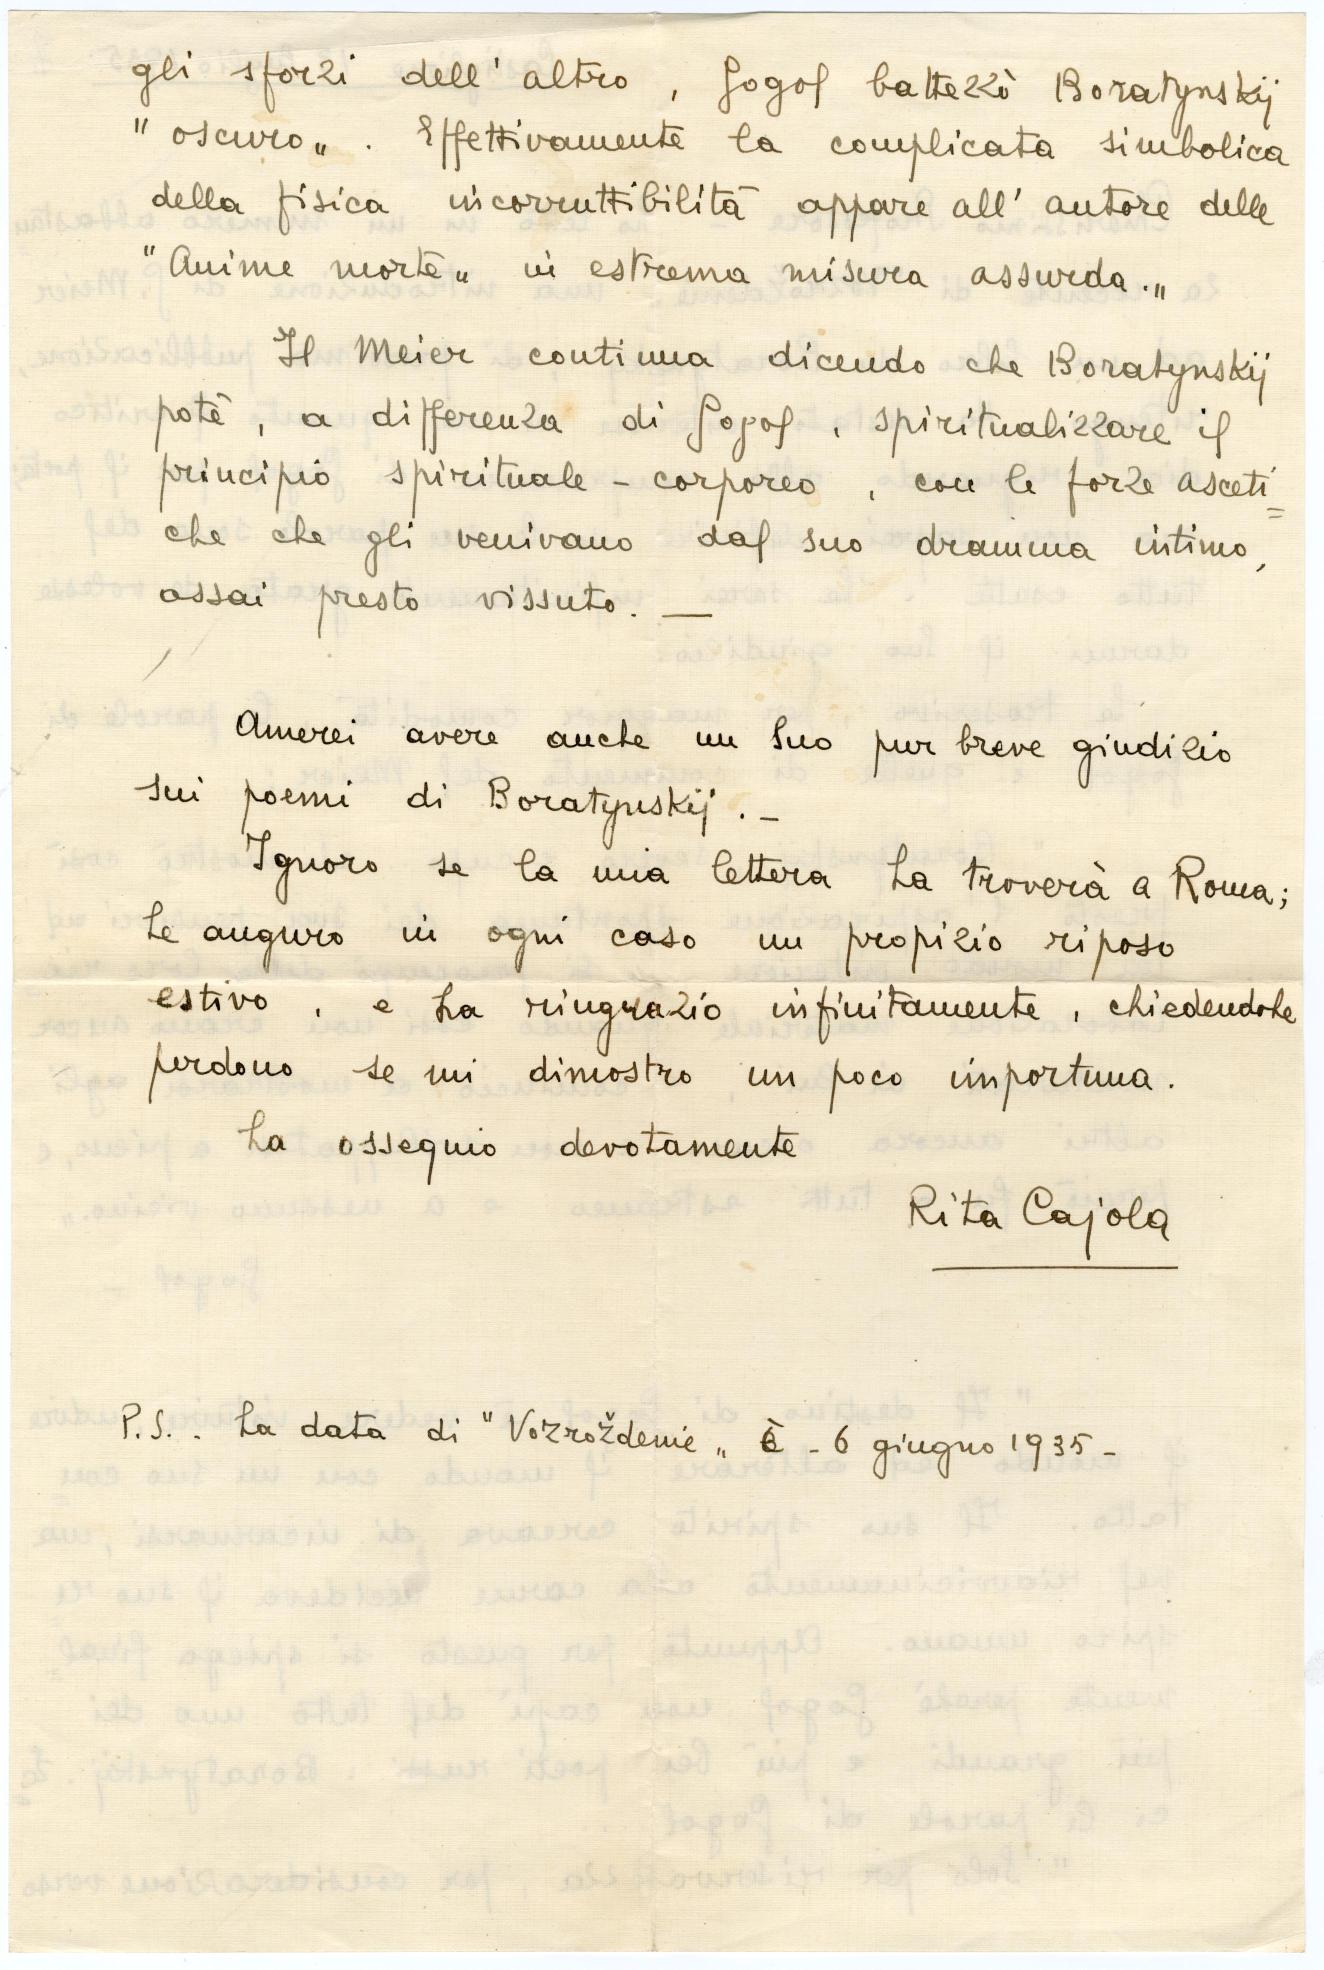 gli sforzi dell' altro , Gogol battezzò Boratynskij
" oscuro„ . Effettivamente la complicata simbolica
della fisica incorruttibilità appare all' autore delle
"Anime morte„ in estrema misura assurda.„
Il Meier continua dicendo che Boratynskij
potè , a differenza di Gogol , spiritualizzare il
principio spirituale - corporeo , con le forze asceti=
che che gli venivano dal suo dramma intimo,
assai presto vissuto. —
Amerei avere anche un Suo pur breve giudizio
sui poemi di Boratynskij . -
Ignoro se la mia lettera La troverà a Roma;
Le auguro in ogni caso un propizio riposo
estivo , e La ringrazio infinitamente , chiedendoLe
perdono se mi dimostro un poco importuna .
La ossequio devotamente
Rita Cajola
P.S. . La data di " Vozroždenie „ è - 6 giugno 1935 -